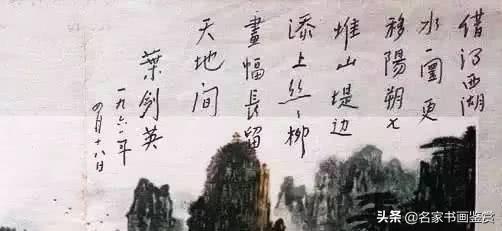 借得西湖
水一圜更
移陽朔七
堆山堤边
添上丝丝柳
畫幅長留
天地间
葉劍英
一九六一年
四月十八日
头条 @名家书画鉴赏